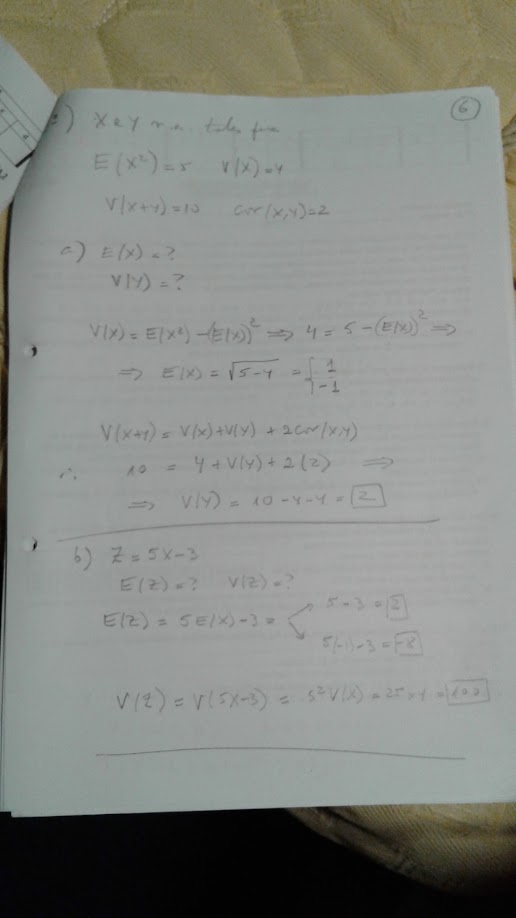 6
2) X e Y v.a. tales que
E(X²)=5 V(X)=4
V(X+Y)=10 cov(X,Y)=2
a) E(X)=?
V(Y)=?
V(X)=E(X²)-(E(X))² => 4=5-(E(X))² =>
=> E(X)=√5-4 = { 1
-1
V(X+Y)=V(X)+V(Y)+2cov(X,Y)
∴ 10 = 4+V(Y)+2(2) =>
=> V(Y)=10-4-4=2
b) Z=5X-3
E(Z)=? V(Z)=?
E(Z)=5E(X)-3= 5-3=2
5(-1)-3=-8
V(Z)=V(5X-3)=5²V(X)=25×4=100